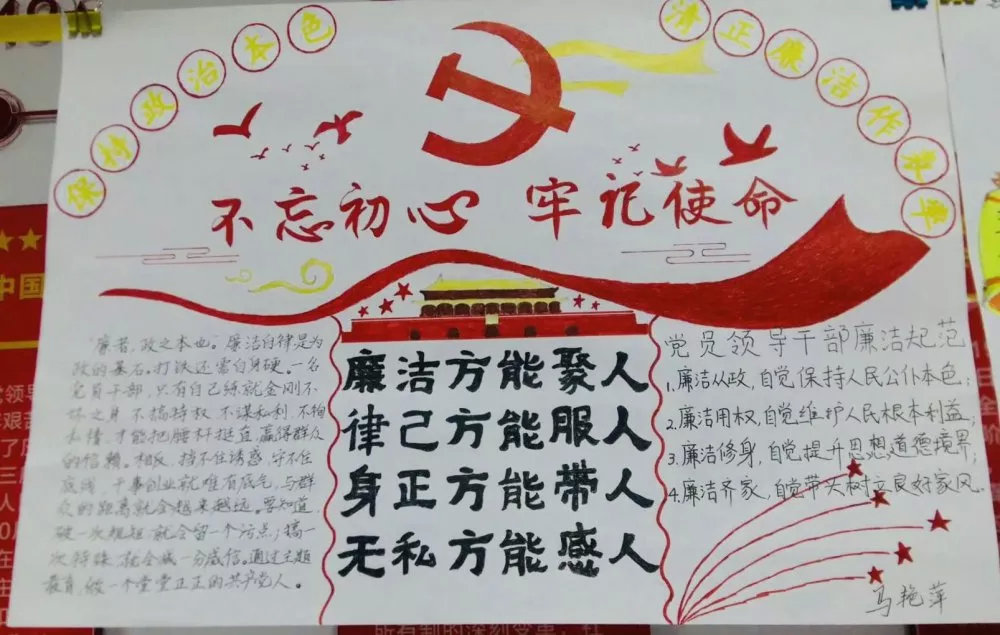 保持政治本色
清正廉洁作表率
不忘初心 牢记使命
"廉者,政之本也。廉洁自律是为
政的基石。打铁还需自身硬。一名
党员干部,只有自己练就金刚不
坏之身,不搞特权、不谋私利、不徇
私情,才能把腰杆挺直,赢得群众
的信赖。相反,挡不住诱惑,守不住
底线,干事创业就难有底气,与群
众的距离就会越来越远。要知道,
破一次规矩,就会留一个污点;搞一
次特殊,就会减一分威信。通过主题
教育,做一个堂堂正正的共产党人。
廉洁方能聚人
律己方能服人
身正方能带人
无私方能感人
党员领导干部廉洁起范
1.廉洁从政,自觉保持人民公仆本色;
2.廉洁用权,自觉维护人民根本利益;
3.廉洁修身,自觉提升思想道德境界;
4.廉洁齐家,自觉带头树立良好家风.
马艳萍
中国